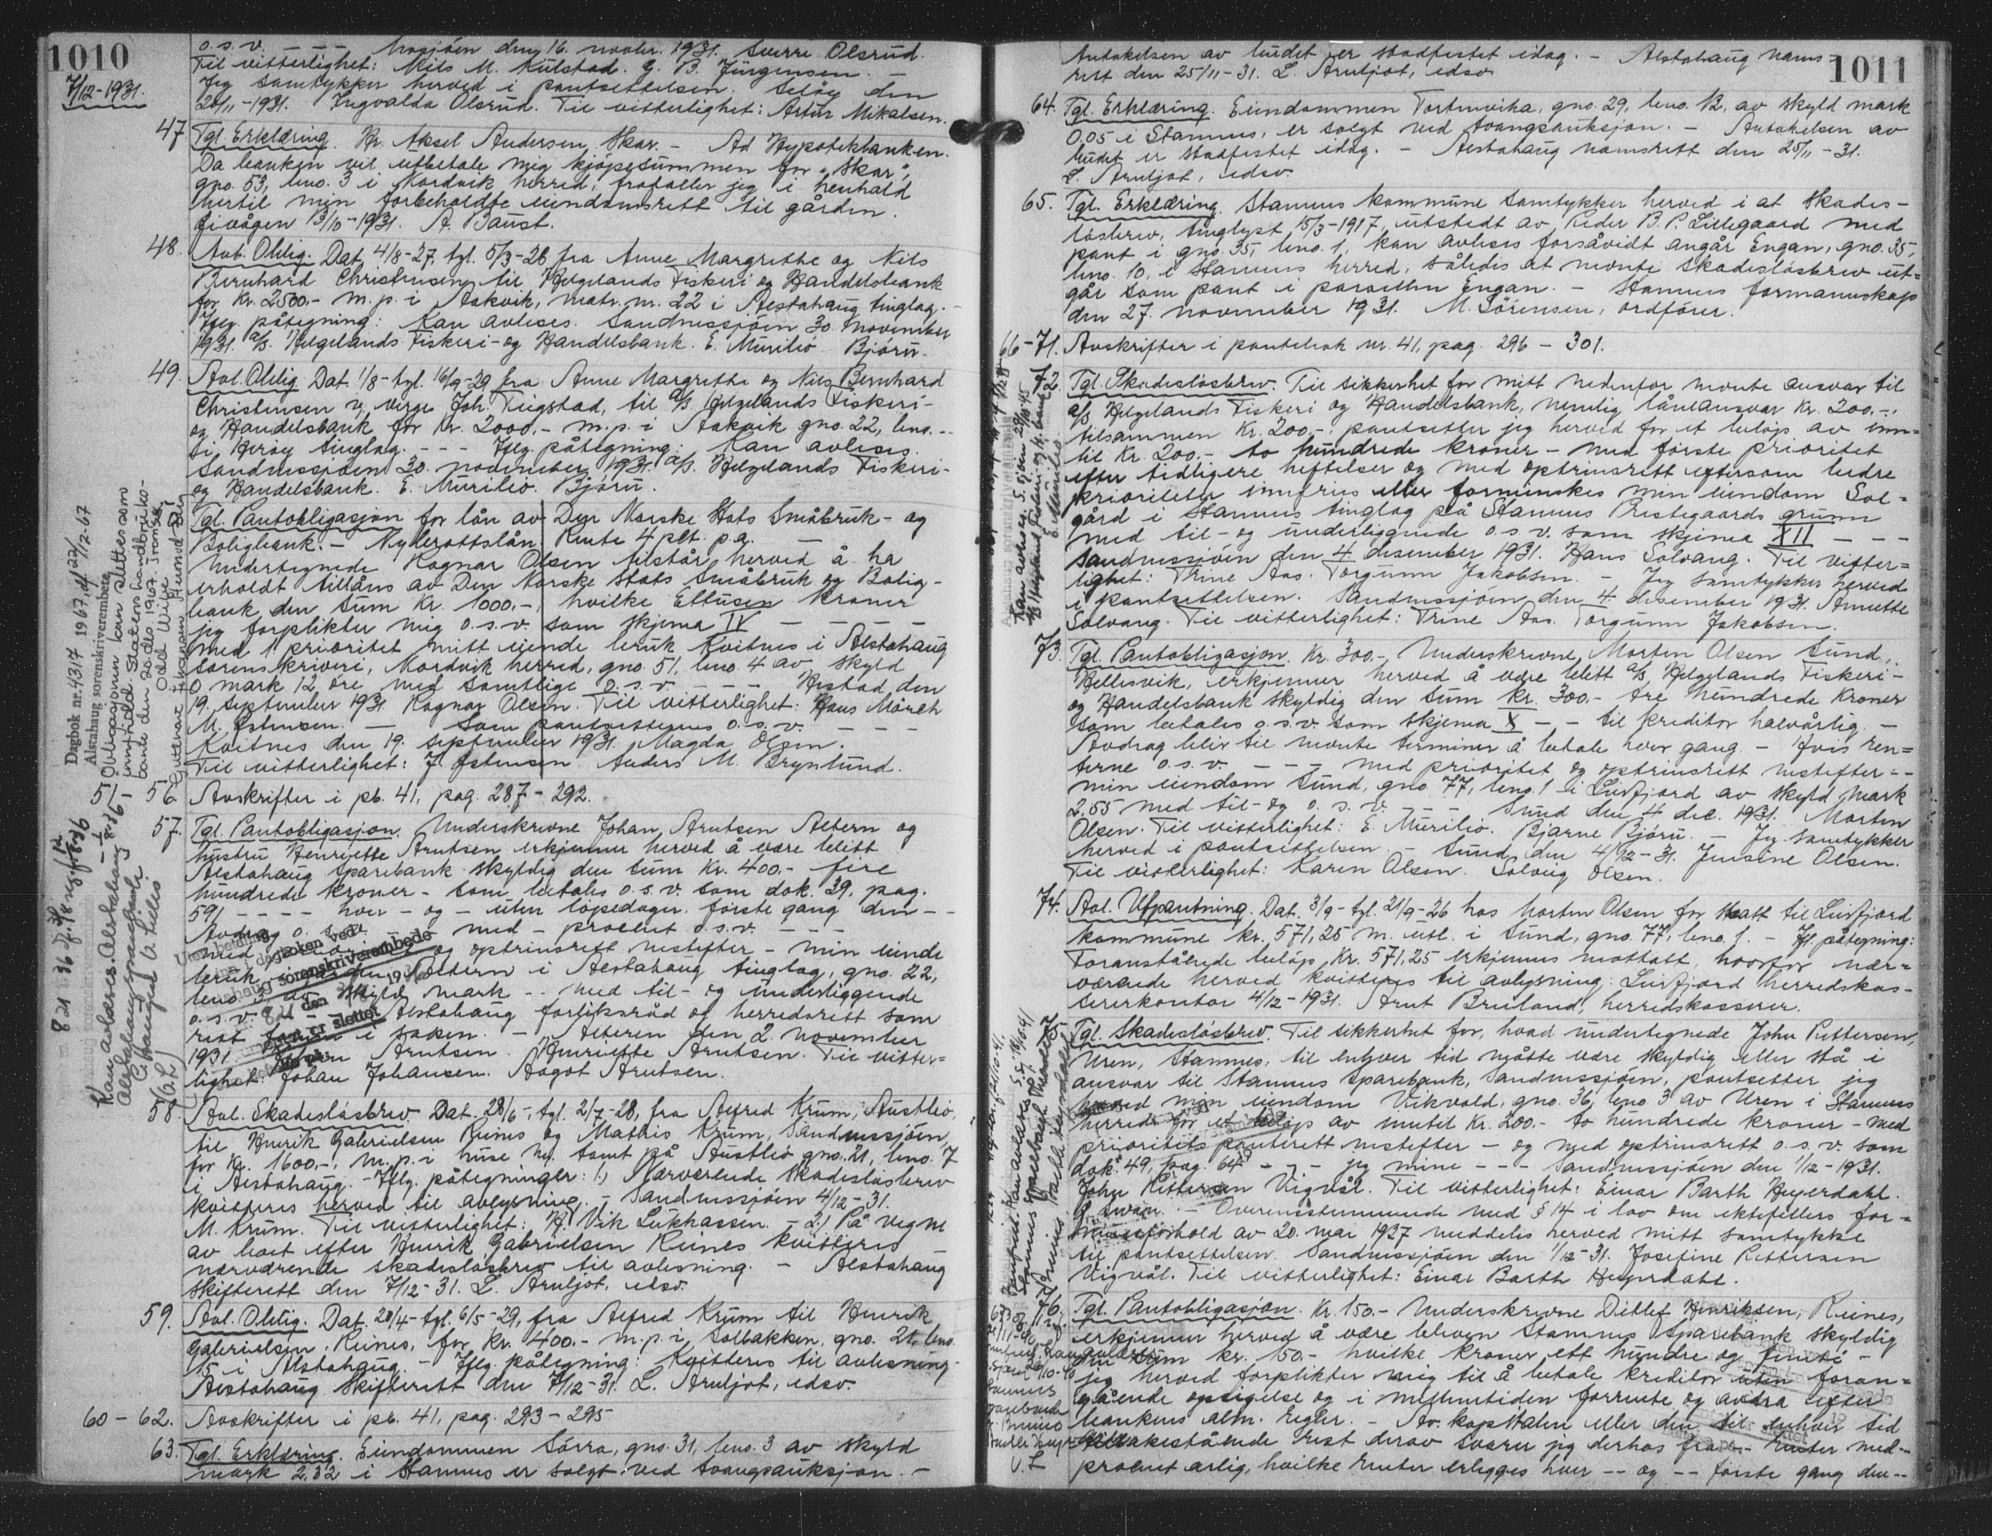 1010
7/12-1931.
o.s.v. - - - Mosjöen den 16. novbr. 1931. Sverre Olsrud.
Til vitterlighet: Nils M. Kulstad. G. B. Jürgensen. -
Jeg samtykker herved i pantsettelsen. Seløy den
20/11-1931. Ingvalda Olsrud. Til vitterlighet: Artur Mikalsen.
47. Tgl. Erklæring. Hr. Aksel Andersen, Skar. - Ad Hypotekbanken.
Da banken vil utbetale mig kjöpesummen for "Skar",
gno. 53, bno. 3 i Nordvik herred, frafaller jeg i henhold
hertil min forbeholdte eiendomsrett til gården.
13/10-1931. A. Baust.
48. Avl. Oblig. Dat. 4/8-27, tgl. 5/3-28 fra Anne Margrethe og Nils
Bernhard Christensen til Helgelands Fiskeri og Handelsbank
for kr. 2500,- m.p. i Askvik, matr. nr. 22 i Alstahaug tinglag. -
Hflg. påtegning: Kan avleses. Sandnessjöen 30. november
1931. A/S Helgelands Fiskeri- og Handelsbank. E. Murilio Björu.
49. Avl. Oblig. Dat. 1/8- tgl. 16/9-29 fra Anne Margrethe og Nils Bernhard
Christensen v/ verge Joh. Tiegstad, til A/S Helgelands Fiskeri-
og Handelsbank for kr. 2000,- m.p. i Askvik gno. 22, bno. --
i Heröy tinglag. - - - Hflg. påtegning: Kan avleses.
Sandnessjöen 30. november 1931. A/S Helgelands Fiskeri-
og Handelsbank. E. Murilio. Björu.
Tgl. Pantobligasjon for lån av Den Norske Stats Småbruk- og
Boligbank. - Nybrottslån. Rente 4 pct. p.a. -
Undertegnede Ragnar Olsen tilstår herved å ha
erholdt tillåns av Den Norske Stats Småbruk og Bolig-
bank den sum kr. 1000,-, hvilke Ettusen kroner
jeg forplikter mig o.s.v. som skjema IV - - -
med 1 prioritet mitt eiende bruk Kvitnes i Alstahaug
sorenskriveri, Nordvik herred, gno. 51, bno. 4 av skyld
0 mark 12 öre, med samtlige o.s.v. - - - Hestad den
19. september 1931 Ragnar Olsen. Til vitterlighet: Hans Mörch
M. Estensen. - - Som pantsetterens o.s.v. - - -
Kvitnes den 19. september 1931. Magda Olsen.
Til vitterlighet: J. Estensen. Anders M. Brynlund.
51 - 56. Avskrifter i pb. 41, pag. 287 - 292.
57. Tgl. Pantobligasjon. Underskrevne Johan Arntsen Alteren og
hustru Henriette Arntsen erkjenner herved å være blitt
Alstahaug sparebank skyldig den sum kr. 400.- fire
hundrede kroner - som betales o.s.v. som dok. 39, pag.
591 - - - - hver - og - uten löpedager, förste gang den - -
Avdrag o.s.v. - - med - procent o.s.v. - - -
med og optrinsrett nestefter - min eiende
bruk Alteren i Alstahaug tinglag, gno. 22,
bno. 3 av skyld mark - - med til- og underliggende
o.s.v. - - Alstahaug forliksråd og herredsrett som
rett i saken. - Alteren den 2 november
1931. Johan Arntsen. Henriette Arntsen. Til vitter-
lighet: Johan Johansen. Aagot Arntsen.
58. Avl. Skadeslösbrev. Dat. 28/6- tgl. 2/7-28, fra Alfred Krum, Austbö
til Henrik Gabrielsen Reines og Mathis Krum, Sandnessjöen
for kr. 1600,-, m.p. i huse tomt på Austbö gno. 21, bno. 7
i Alstahaug. - Hflg. påtegninger: 1.) Nærverende skadeslösbrev
kvitteres herved til avlysning. - Sandnessjöen 4/12-31.
M. Krum. Til vitterlighet: H. Vik Lukkassen. - 2.) På vegne
av boet efter Henrik Gabrielsen Reines kvitteres
nærværende skadeslösbrev til avlesning. - Alstahaug
skifterett den 7/12-31. L. Arnljot, edsv.
59. Avl. Oblig. Dat. 20/4- tgl. 6/5-29, fra Alfred Krum til Henrik
Gabrielsen, Reines, for kr. 400.- m.p. i Solbakken, gno. 21, bno.
15 i Alstahaug. - Hflg. påtegning: Kvitteres til avlesning.
Alstahaug skifterett den 7/12-31. L. Arnljot, edsv.
60 - 62. Avskrifter i pb. 41, pag. 293 - 295
63. Tgl. Erklæring. Eiendommen Sörra, gno. 31, bno. 3 av skyld
mark 2,32 i Stamnes er solgt ved tvangsauksjon. -
Dagbok nr. 4317 1967, d. 22/12-67
Alstahaug sorenskriverembete
Obligasjonen kan slettes som
innfridd. Statens Landbruksbank
821
Kan avleses. Alstahaug
Alstahaug sparebank
1011
Antakelsen av budet er stadfestet idag. - Alstahaug nams-
rett den 25/11-31. L. Arnljot, edsv.
64. Tgl. Erklæring. Eiendommen Tortenvika, gno. 29, bno. 12, av skyld mark
0,05 i Stamnes, er solgt ved tvangsauksjon. - Antakelsen av
budet er stadfestet idag. - Alstahaug namsrett den 25/11-31.
L. Arnljot, edsv.
65. Tgl. Erklæring. Stamnes kommune samtykker herved i at skades-
lösbrev, tinglyst 15/3-1917, utstedt av Peder B. P. Lillegaard med
pant i gno. 35, bno. 1, kan avleses forsåvidt angår Engan, gno. 35,
bno. 10, i Stamnes herred, således at nevnte skadeslösbrev ut-
går som pant i parsellen Engan. - Stamnes formannskap
den 27. november 1931. M. Sörensen, ordförer.
66 - 71. Avskrifter i pantebok nr. 41, pag. 296 - 301.
72. Tgl. Skadeslösbrev. Til sikkerhet for mitt nedenfor nevnte ansvar til
A/S Helgelands Fiskeri og Handelsbank, nemlig låneansvar kr. 200,-,
tilsammen kr. 200,- pantsetter jeg herved for et belöp av inn-
til kr. 200,- to hundrede kroner - med förste prioritet
efter tidligere heftelser og med optrinsrett eftersom bedre
prioriteter innfries eller forminskes min eiendom Sol-
gård i Stamnes tinglag på Stamnes Prestegaards grunn
med til- og underliggende o.s.v. som skjema XII - - -
Sandnessjöen den 4. desember 1931. Hans Solvang. Til vitter-
lighet: Trine Aas. Torgunn Jakobsen. - Jeg samtykker herved
i pantsettelsen. Sandnessjöen den 4. desember 1931. Annette
Solvang. Til vitterlighet: Trine Aas. Torgunn Jakobsen.
73. Tgl. Pantobligasjon. kr. 300.- Underskrevne, Morten Olsen Sund,
Hellesvik, erkjenner herved å være blitt A/S Helgelands Fiskeri-
og Handelsbank skyldig den sum kr. 300.- tre hundrede kroner
som betales o.s.v. som skjema X - - til kreditor halvårlig -
Avdrag blir til nevnte terminer å betale hver gang. - Hvis ren-
terne o.s.v. - - - med prioritet og optrinsrett nestefter - -
min eiendom Sund, gno. 77, bno. 1 i Leirfjord av skyld mark
2,55 med til- og o.s.v. - - - Sund den 4 dec. 1931. Morten
Olsen. Til vitterlighet: E. Murilio. Bjarne Björu. - Jeg samtykker
herved i pantsettelsen. - Sund, den 4/12-31. Jensine Olsen.
Til vitterlighet: Karen Olsen. Solveig Olsen.
74. Avl. Utpantning. Dat. 3/9- tgl. 21/9-26 hos Morten Olsen for skatt til Leirfjord
kommune kr. 571,25 m. utl. i Sund, gno. 77, bno. 1. - Hfl. påtegning:
Foranstående belöp kr. 571,25 erkjennes mottatt, hvorfor nær-
værende herved kvitteres til avlysning. Leirfjord herredskas-
sererkontor 4/12-1931. Arnt Breiland, herredskasserer.
75. Tgl. Skadeslösbrev. Til sikkerhet for, hvad undertegnede John Pettersen,
Uren, Stamnes, til enhver tid måtte være skyldig eller stå i
ansvar til Stamnes sparebank, Sandnessjöen, pantsetter jeg
herved min eiendom Vikvold, gno. 36, bno. 3 av Uren i Stamnes
herred for et belöp av inntil kr. 200.- to hundrede kroner - med
prioritets panterett nestefter - og med optrinsrett o.s.v. som
dok. 49, pag. 64 - - - jeg mine - - - Sandnessjöen den 1/12-1931.
John Pettersen Vigvål. Til vitterlighet: Einar Barth Heyerdahl.
G. Swan. - Overensstemmende med § 14 i lov om ektefellers for-
muesforhold av 20. mai 1927 meddeles herved mitt samtykke
til pantsettelsen. Sandnessjöen den 1/12-31. Josefine Pettersen
Vigvål. Til vitterlighet: Einar Barth Heyerdahl.
76. Tgl. Pantobligasjon. kr. 150.- Underskrevne Ditlef Henriksen, Reines,
erkjenner herved å være bleven Stamnes sparebank skyldig
den sum kr. 150.- hvilke kroner ett hundre og femti -
jeg herved forplikter mig til å betale kreditor uten foran-
gående opsigelse og i mellemtiden forrente og avdra efter
bankens alm. regler. - Av kapitalen eller den til enhver tid
tilbakestående rest derav svarer jeg derhos fra - renter med -
procent årlig, hvilke renter erlegges hver - - og - - förste gang den - -